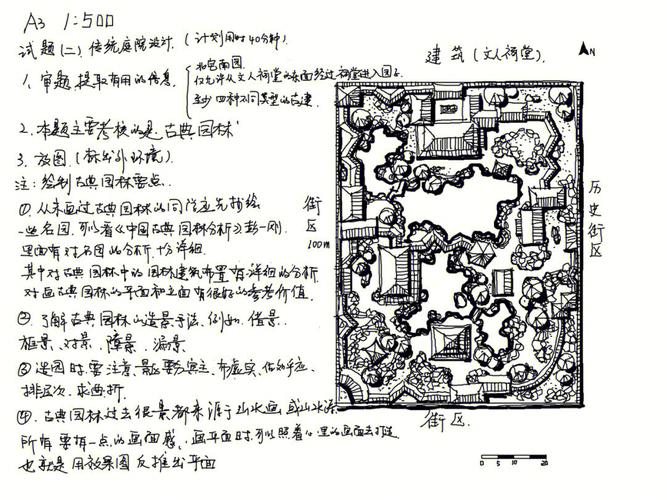 A3 1:500
试题(二)、传统庭院设计、(计划用时40分钟)
1、审题 提取有用的信息
北宅南园
仅允许从文人祠堂的东面经过祠堂进入园子
至少四种不同类型的古建
2、本题主要考核的是古典园林
3、放图(标出外环境)
注:绘制古典园林要点
①、从未画过古典园林的同学应先抄绘
一些名园,可以看《中国古典园林分析》彭一刚
里面有对名园的分析,十分详细
其中对古典园林中的园林建筑布置有详细的分析
对画古典园林的平面和立面有很好的参考价值
②、了解古典园林的造景手法,例如、借景、
框景、对景、障景、漏景
③ 造园时要注意、景区要分宾主、布虚实、
排层次、求曲折
④、古典园林过去很多都来源于山水画或山水诗
所有要有一点的画面感、画平面时可以照着心里的画面去打造
也就是用效果图反推出平面
建筑(文人祠堂)
N
街区
100m
历史街区
街区
0 5 10 20